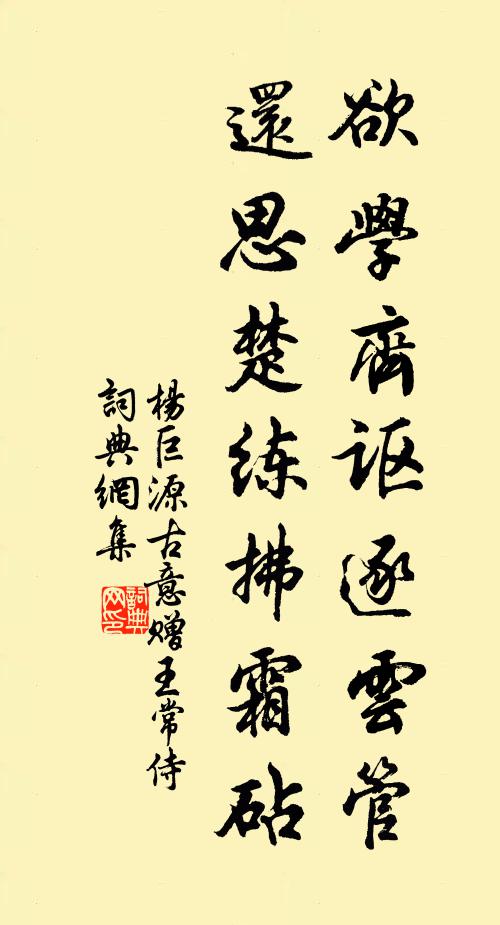 欲學齊讴逐雲管
還思楚练拂霜砧
楊巨源古意赠王常侍
詞典網集
詞典网印